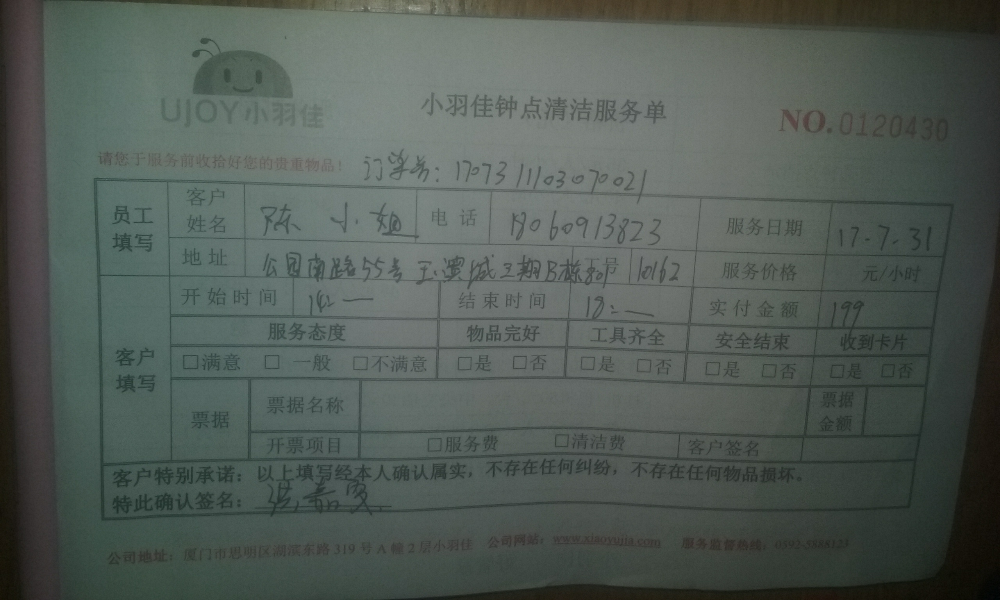 UJOY小羽佳
小羽佳钟点清洁服务单
NO. 0120430
请您于服务前收拾好您的贵重物品！ 订单号：1707311103070021
员工填写 客户姓名 陈小姐 电话 18060913823 服务日期 17.7.31
地址 公园南路55号 栋 工号 10162 服务价格 元/小时
客户填写 开始时间 14:— 结束时间 18:— 实付金额 199
服务态度 物品完好 工具齐全 安全结束 收到卡片
□满意 □一般 □不满意 □是 □否 □是 □否 □是 □否 □是 □否
票据 票据名称 票据金额
开票项目 □服务费 □清洁费 客户签名
客户特别承诺：以上填写经本人确认属实，不存在任何纠纷，不存在任何物品损坏。
特此确认签名：
公司地址：厦门市思明区湖滨东路319号A幢2层小羽佳 公司网站：www.xiaoyujia.com 服务监督热线：